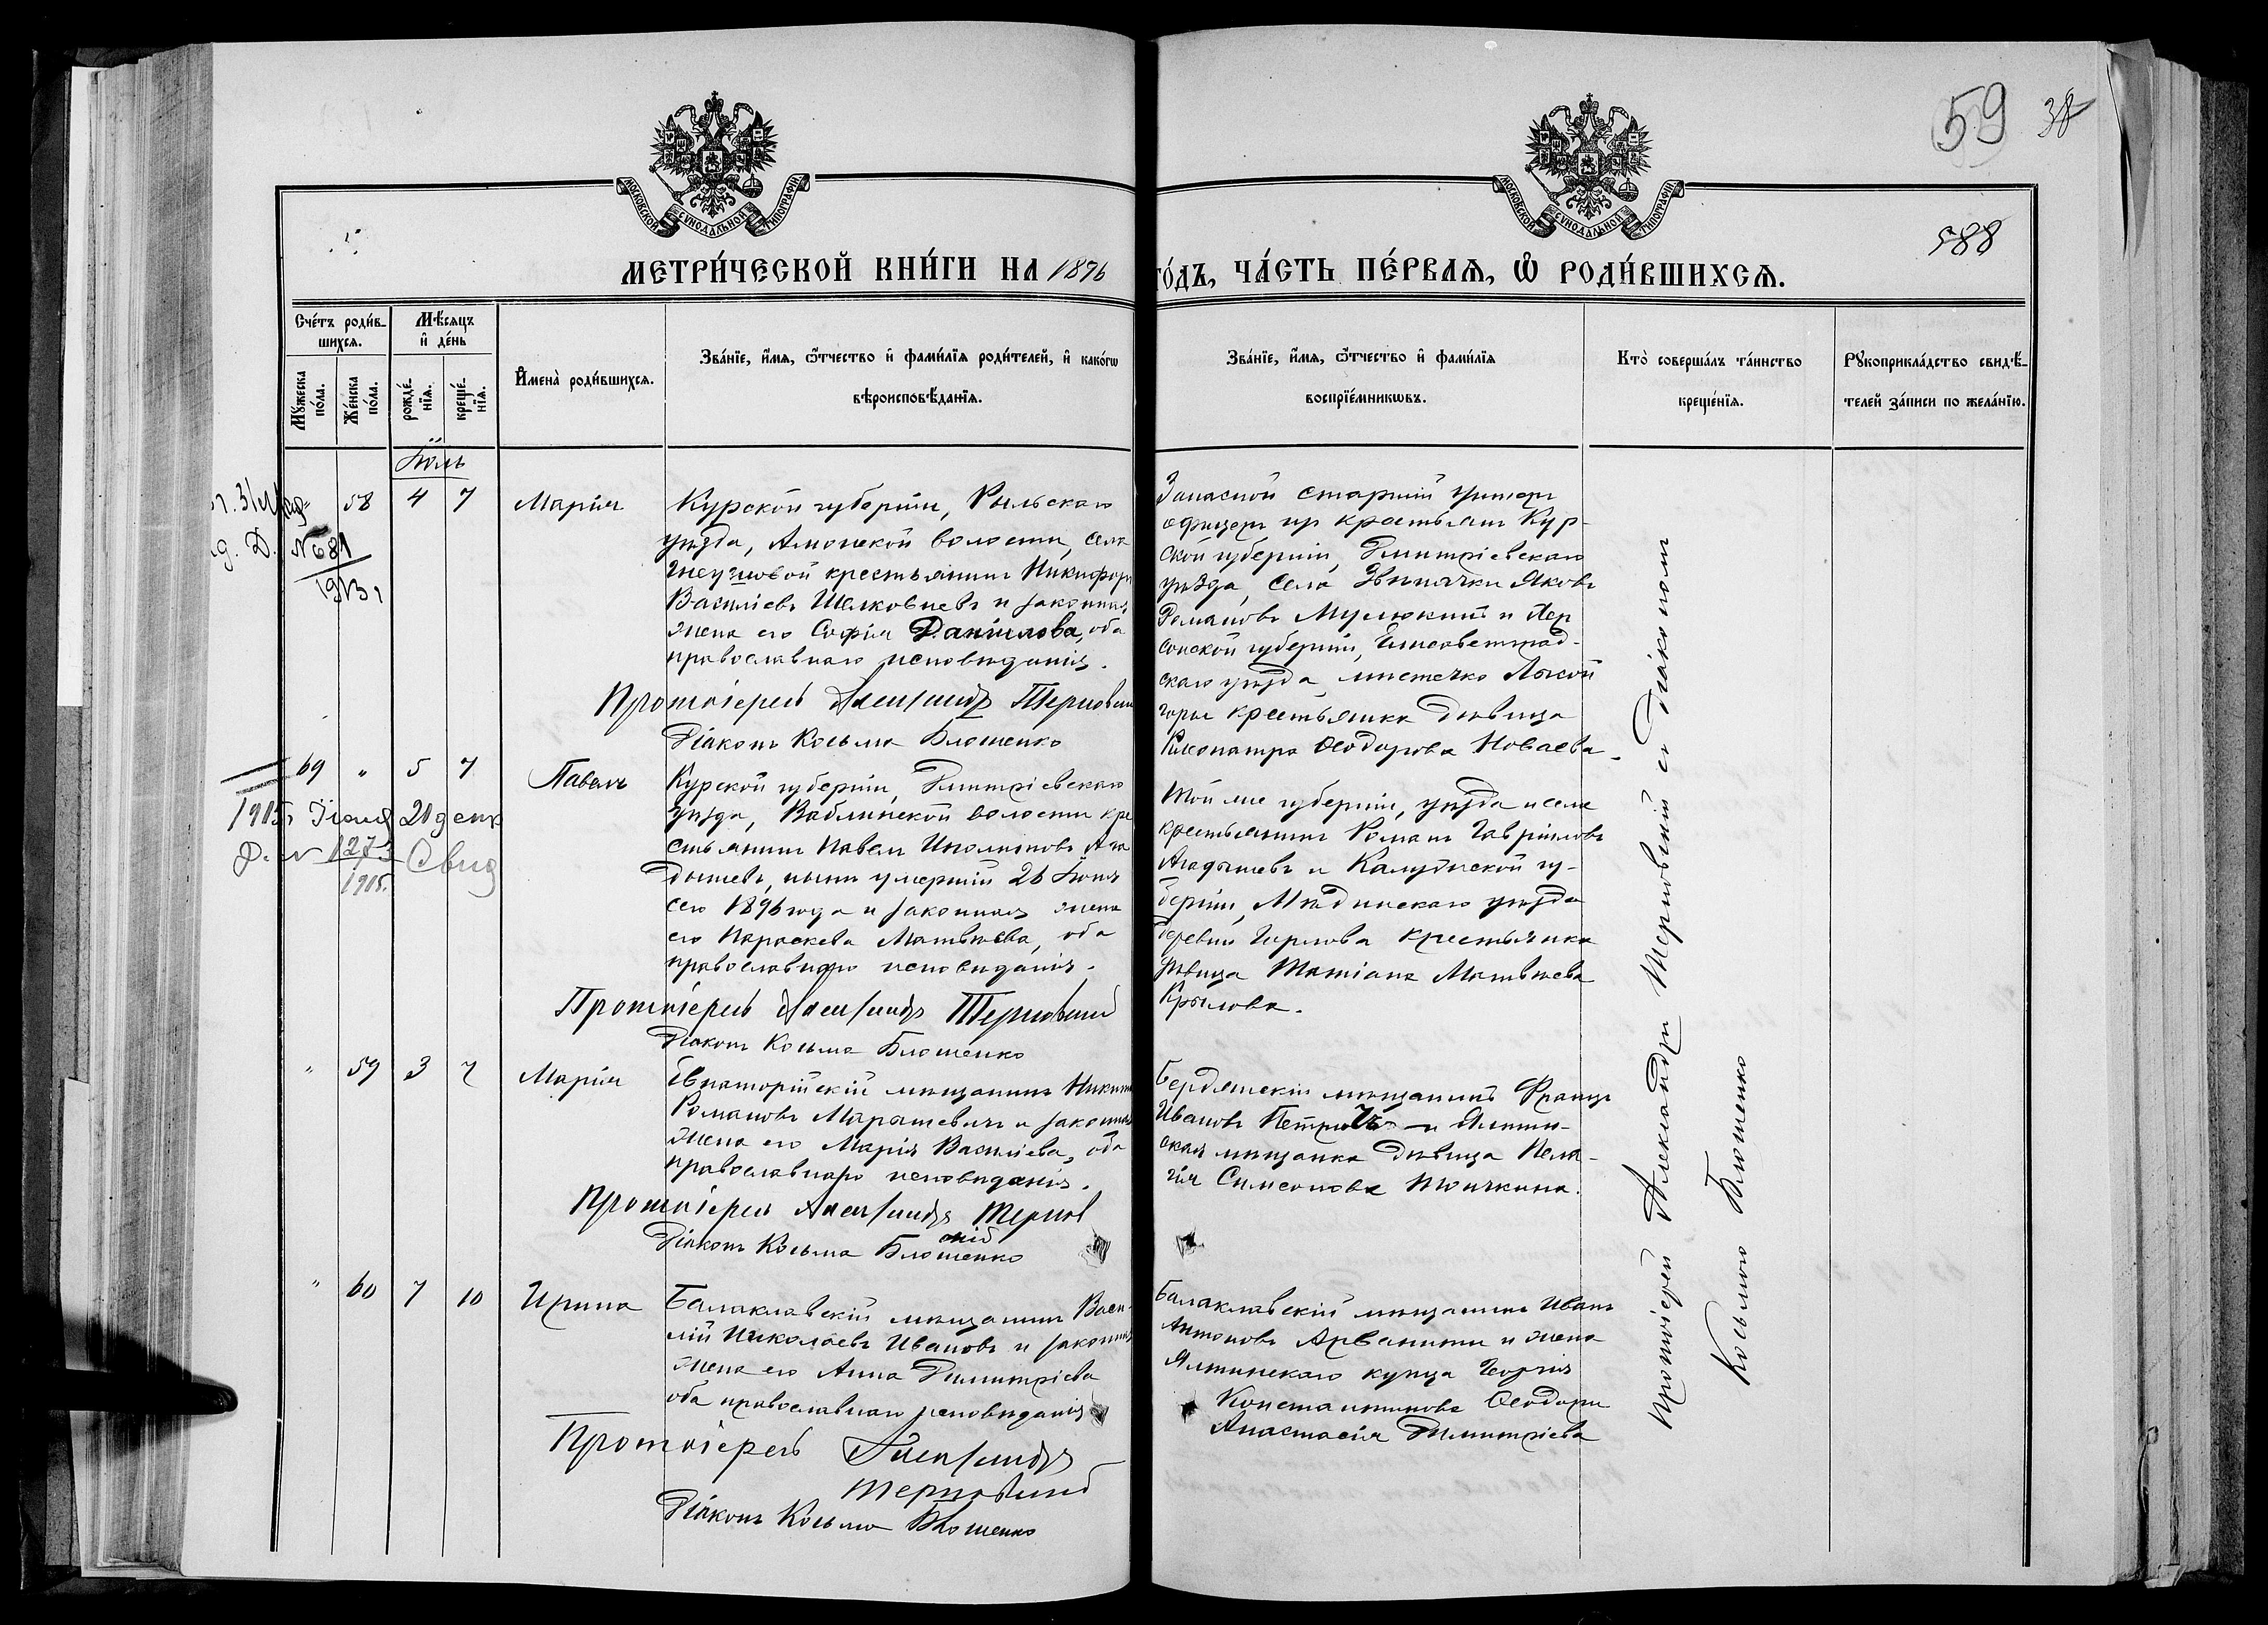 59 38
588
МОСКОВСКОЙ СѴНОДАЛЬНОЙ ТИПОГРАФІИ
МОСКОВСКОЙ СѴНОДАЛЬНОЙ ТИПОГРАФІИ
МЕТРИ́ЧЕСКОЙ КНИ́ГИ НА 1896
ГО́ДЪ, ЧА́СТЬ ПЕ́РВАЯ, Ѿ РОДИ́ВШИХСЯ.
Сче́тъ роди́в-
шихся.
Мꙋжеска по́ла.
Же́нска по́ла.
Мѣ́сяцъ
и҆ де́нь
рожде́-
нїя.
креще́-
нїя.
И҆мена̀ роди́вшихся.
Зва́нїе, и҆́мя, ѻ҆́тчество и҆ фами́лїя роди́телей, и҆ како́гѡ
вѣроисповѣ́данїя.
Зва́нїе, и҆́мя, ѻ҆́тчество и҆ фами́лїя
воспрїе́мникѡвъ.
Кто̀ соверша́лъ та́инство
креще́нїя.
Рꙋкоприкла́дство свидѣ́-
телей за́писи по жела́нїю.
Іюль
58 4 7 Марія
№ 681
1913 г
Курской губерніи, Рыльскаго
уѣзда, Амонской волости, села
крестьянинъ Никифоръ
Василіевъ Шелковневъ и законная
жена его Софія Даніилова, оба
православнаго исповѣданія.
Протоіерей Александръ Терновскій
Діаконъ Косьма Блошенко
Запасной старшій унтеръ
офицеръ изъ крестьянъ Кур-
ской губерніи, Дмитріевскаго
уѣзда, села Звѣнячки Яковъ
Романовъ и Хер
сонской губерніи, Елисаветград-
скаго уѣзда, мѣстечка Лысой
горы крестьянка дѣвица
Клеопатра Ѳеодорова Новаева
69 " 5 7 Павелъ
1915 г Іюня 21 дня
№ 1273 Свид
1915.
Курской губерніи, Дмитріевскаго
уѣзда, Ваблинской волости кре
стьянинъ Павелъ Ага
дышевъ, нынѣ умершій 26 Іюня
сего 1896 года и законная жена
его Параскева Матвѣева, оба
православнаго исповѣданія.
Протоіерей Александръ Терновскій
Діаконъ Косьма Блошенко
Той же губерніи, уѣзда и села
крестьянинъ Романъ Гавріиловъ
Агадышевъ и Калужской гу-
берніи, Мядынскаго уѣзда
деревни Горлова крестьянка
дѣвица Татіана Матвѣева
Крылова.
" 59 3 7 Марія
Евпаторійскій мѣщанинъ Никита
Романовъ Марашевичъ и законная
жена его Марія Василіева, оба
православнаго исповѣданія.
Протоіерей Александръ Тернов
скій
Діаконъ Косьма Блошенко
Бердянскій мѣщанинъ Францъ
Ивановъ Петровичъ и Ялтин-
ская мѣщанка дѣвица Пела-
гія Симеонова
" 60 7 10 Ирина
Балаклавскій мѣщанинъ Васи-
лій Николаевъ Ивановъ и законная
жена его Анна Димитріева
оба православнаго исповѣданія
Протоіерей Александръ
Терновскій
Діаконъ Косьма Блошенко
Балаклавскій мѣщанинъ Иванъ
Антоновъ Арванити и жена
Ялтинскаго купца Георгія
Константинова Ѳеодори
Анастасія Димитріева
Протоіерей Александръ Терновскій съ діакономъ
Косьмою Блошенко